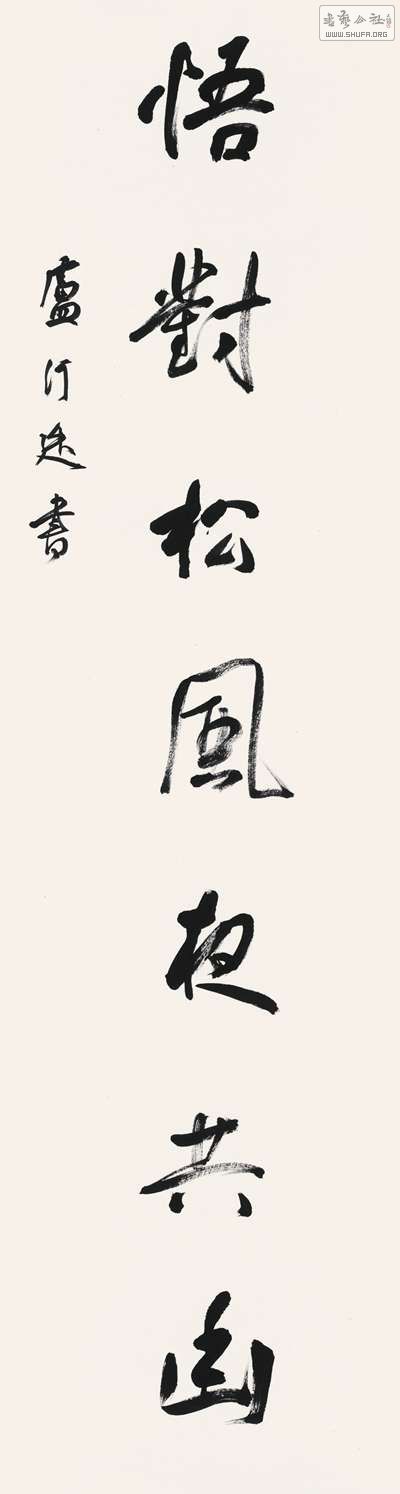 悟對松風夜共幽
盧汀逸書
書藝公社
WWW.SHUFA.ORG